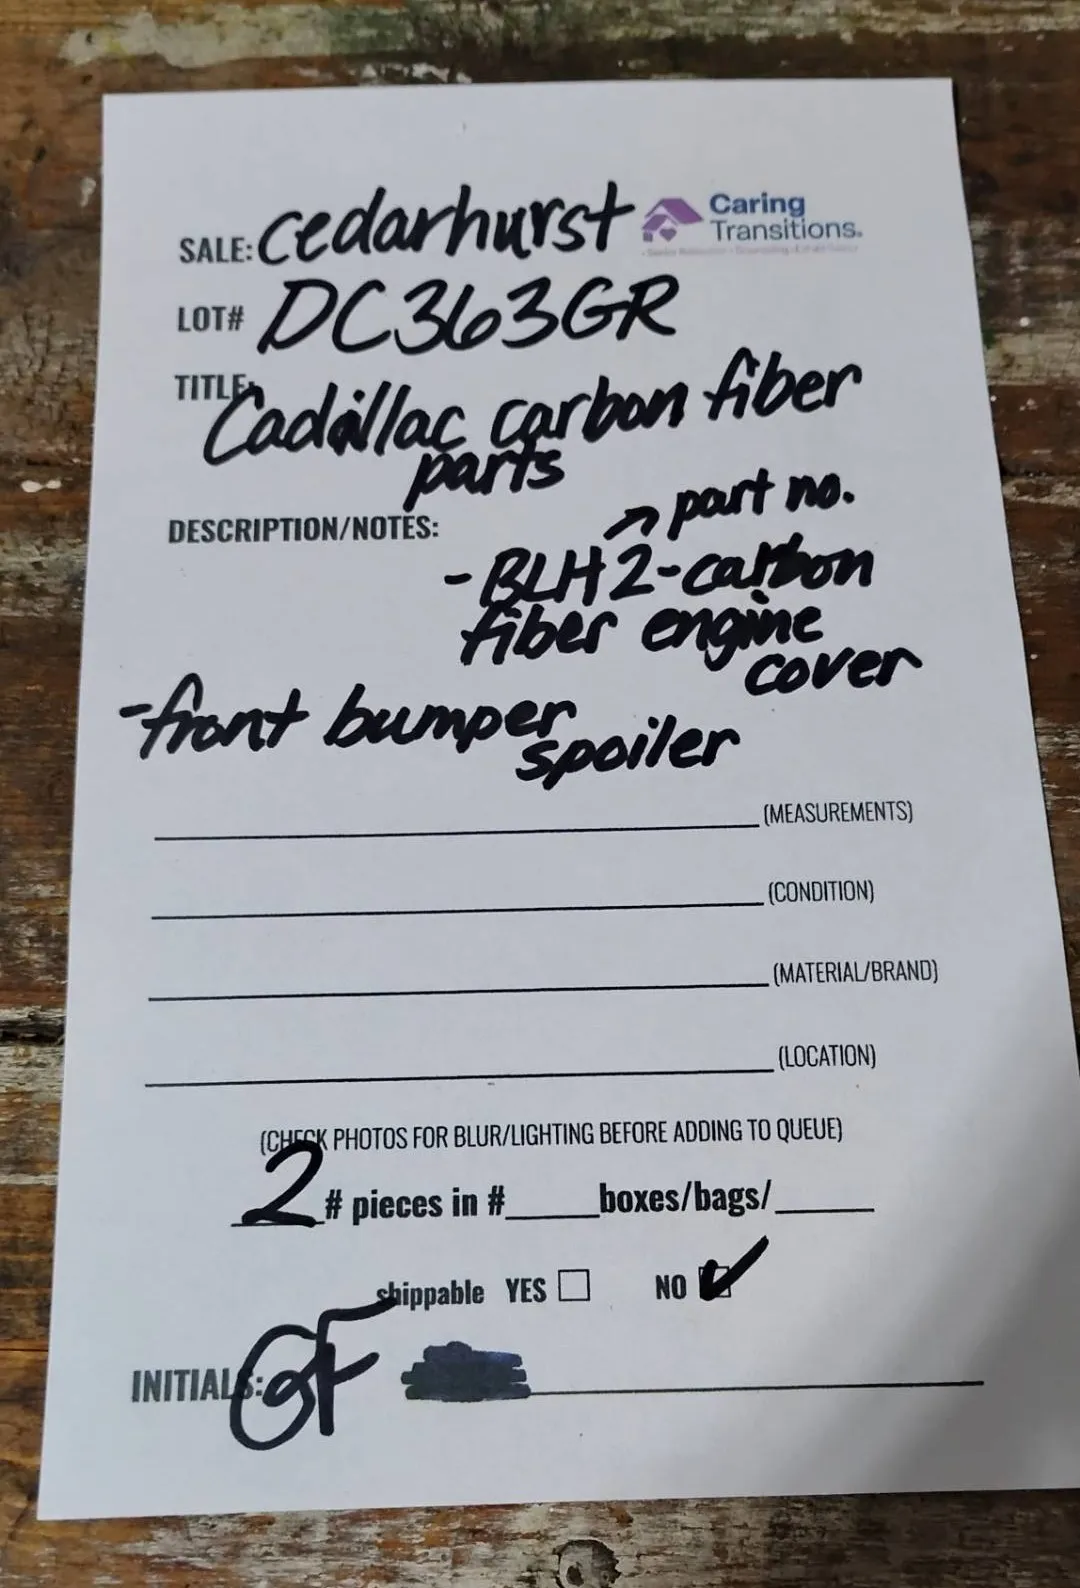 SALE: Cedarhurst
Caring
Transitions.
LOT# DC363GR
TITLE: Cadillac carbon fiber
parts
DESCRIPTION/NOTES:
→ part no.
-BLH2-carbon
fiber engine
cover
-front bumper
spoiler
(MEASUREMENTS)
(CONDITION)
(MATERIAL/BRAND)
(LOCATION)
(CHECK PHOTOS FOR BLUR/LIGHTING BEFORE ADDING TO QUEUE)
2 # pieces in #____boxes/bags/____
shippable YES ☐ NO ☑
INITIALS: GF